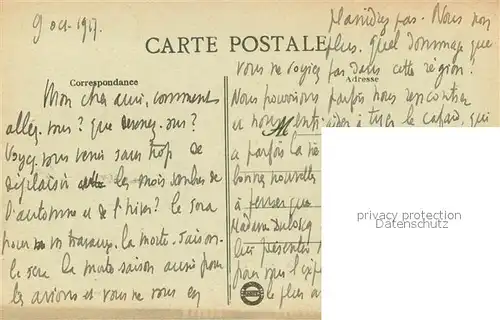 9 oct. 1917.
CARTE POSTALE
Correspondance
Adresse
Mon cher ami, comment
allez-vous? que devenez-vous?
Voyez-vous venir sans trop de
déplaisir les mois sombres de
l'automne et de l'hiver? Ce sera
pour vos travaux la morte-saison.
Ce sera la morte saison aussi pour
les avions et vous ne vous en
plaindrez pas. Nous non
plus. Quel dommage que
vous ne soyez pas dans cette région!
Nous pourrions parfois nous rencontrer
et nous entr'aider à tuer le cafard, qui
a parfois la
bonnes nouvelles
à penser que
Madame
lui présenter
pour vous l'
le plus
privacy protection
Datenschutz